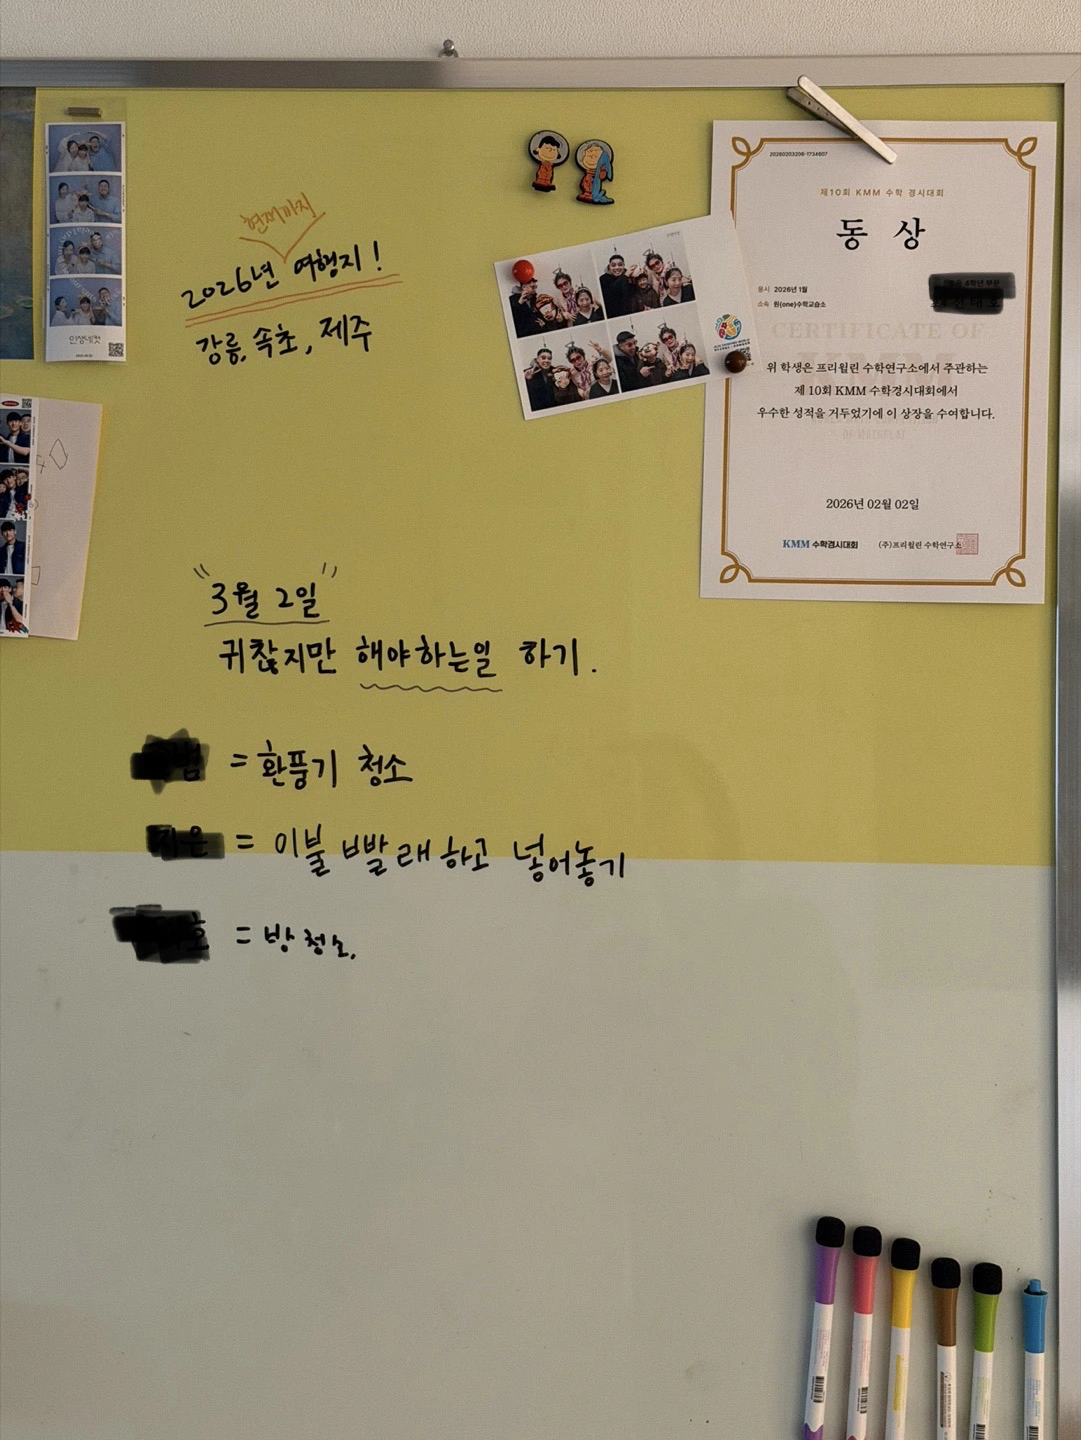 현재까지
2026년 여행지!
강릉, 속초, 제주
인생네컷
20260203206-1734607
제10회 KMM 수학 경시대회
동 상
응시 2026년 1월
소속 원(one)수학교습소
4학년 부문
CERTIFICATE OF
KMM
위 학생은 프리윌린 수학연구소에서 주관하는
제 10회 KMM 수학경시대회에서
우수한 성적을 거두었기에 이 상장을 수여합니다.
2026년 02월 02일
KMM 수학경시대회 (주)프리윌린 수학연구소
"3월 2일"
귀찮지만 해야하는일 하기.
= 환풍기 청소
= 이불 빨래하고 넣어놓기
= 방 청소.